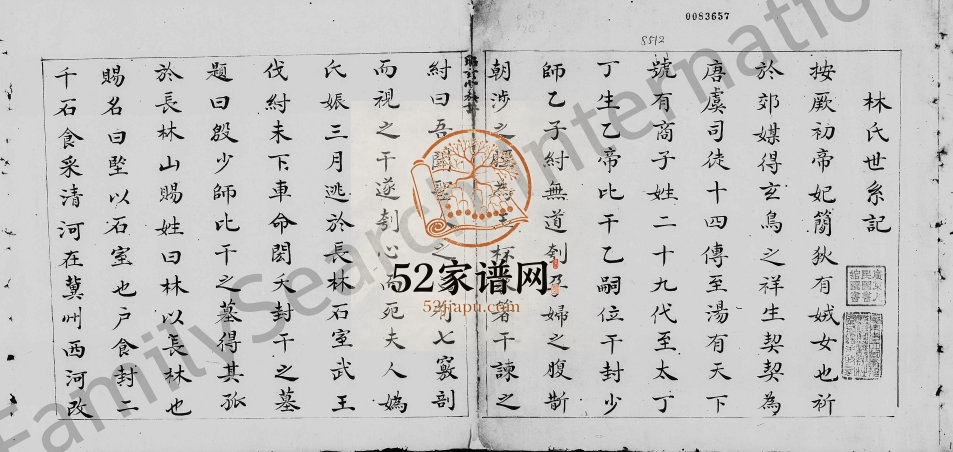 0083657
8512
林氏世系記
按厥初帝妃簡狄有娀女也祈
於郊媒得玄鳥之祥生契契為
唐虞司徒十四傳至湯有天下
號有商子姓二十九代至太丁
丁生乙帝比干乙嗣位干封少
師乙子紂無道刳孕婦之腹斮
朝涉之脛為玉杯箸干諫之
紂曰吾聞聖之有七竅剖
而視之干遂刳心而死夫人媯
氏娠三月逃於長林石室武王
伐紂未下車命閎夭封干之墓
題曰殷少師比干之墓得其孤
於長林山賜姓曰林以長林也
賜名曰堅以石室也戶食封二
千石食采清河在冀州西河改
52家谱网
52jiapu.com
FamilySearch International